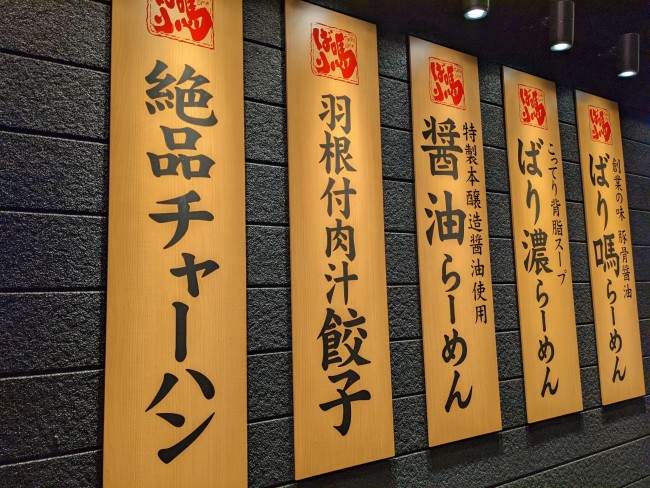 ばり嗎
創業の味 豚骨醤油
ばり嗎らーめん
ばり嗎
こってり背脂スープ
ばり濃らーめん
ばり嗎
特製本醸造醤油使用
醤油らーめん
ばり嗎
羽根付肉汁餃子
ばり嗎
絶品チャーハン